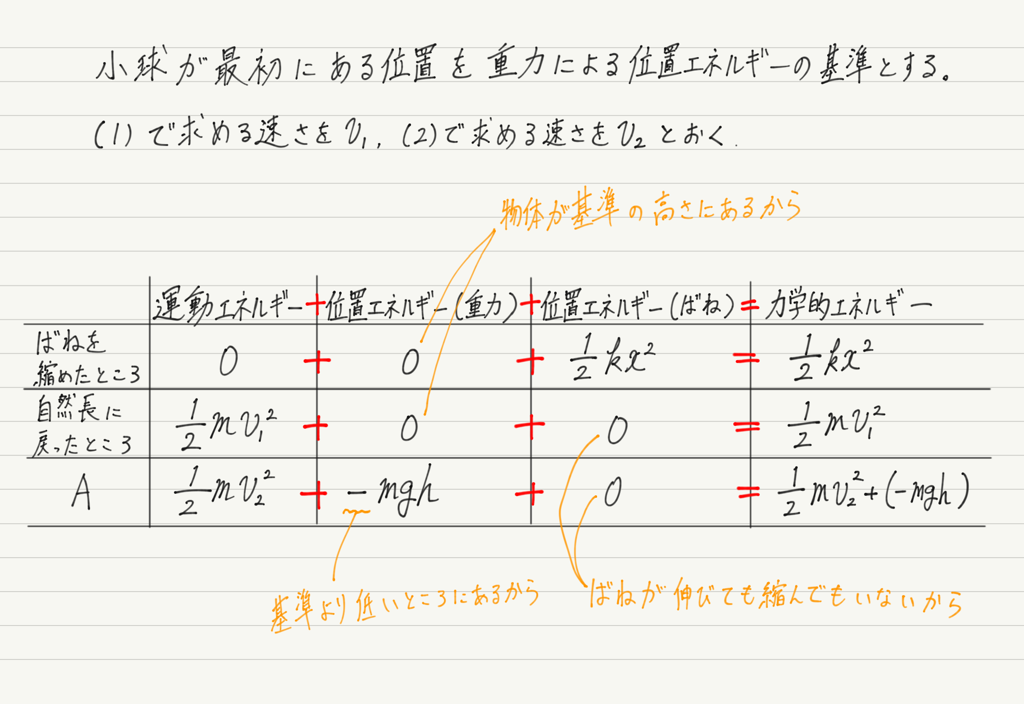 小球が最初にある位置を重力による位置エネルギーの基準とする。
(1)で求める速さをv₁, (2)で求める速さをv₂とおく.
物体が基準の高さにあるから
運動エネルギー+位置エネルギー(重力)+位置エネルギー(ばね)=力学的エネルギー
ばねを
縮めたところ 0 + 0 + 1/2 kx² = 1/2 kx²
自然長に
戻ったところ 1/2 mv₁² + 0 + 0 = 1/2 mv₁²
A 1/2 mv₂² + -mgh + 0 = 1/2 mv₂²+(-mgh)
基準より低いところにあるから
ばねが伸びても縮んでもいないから